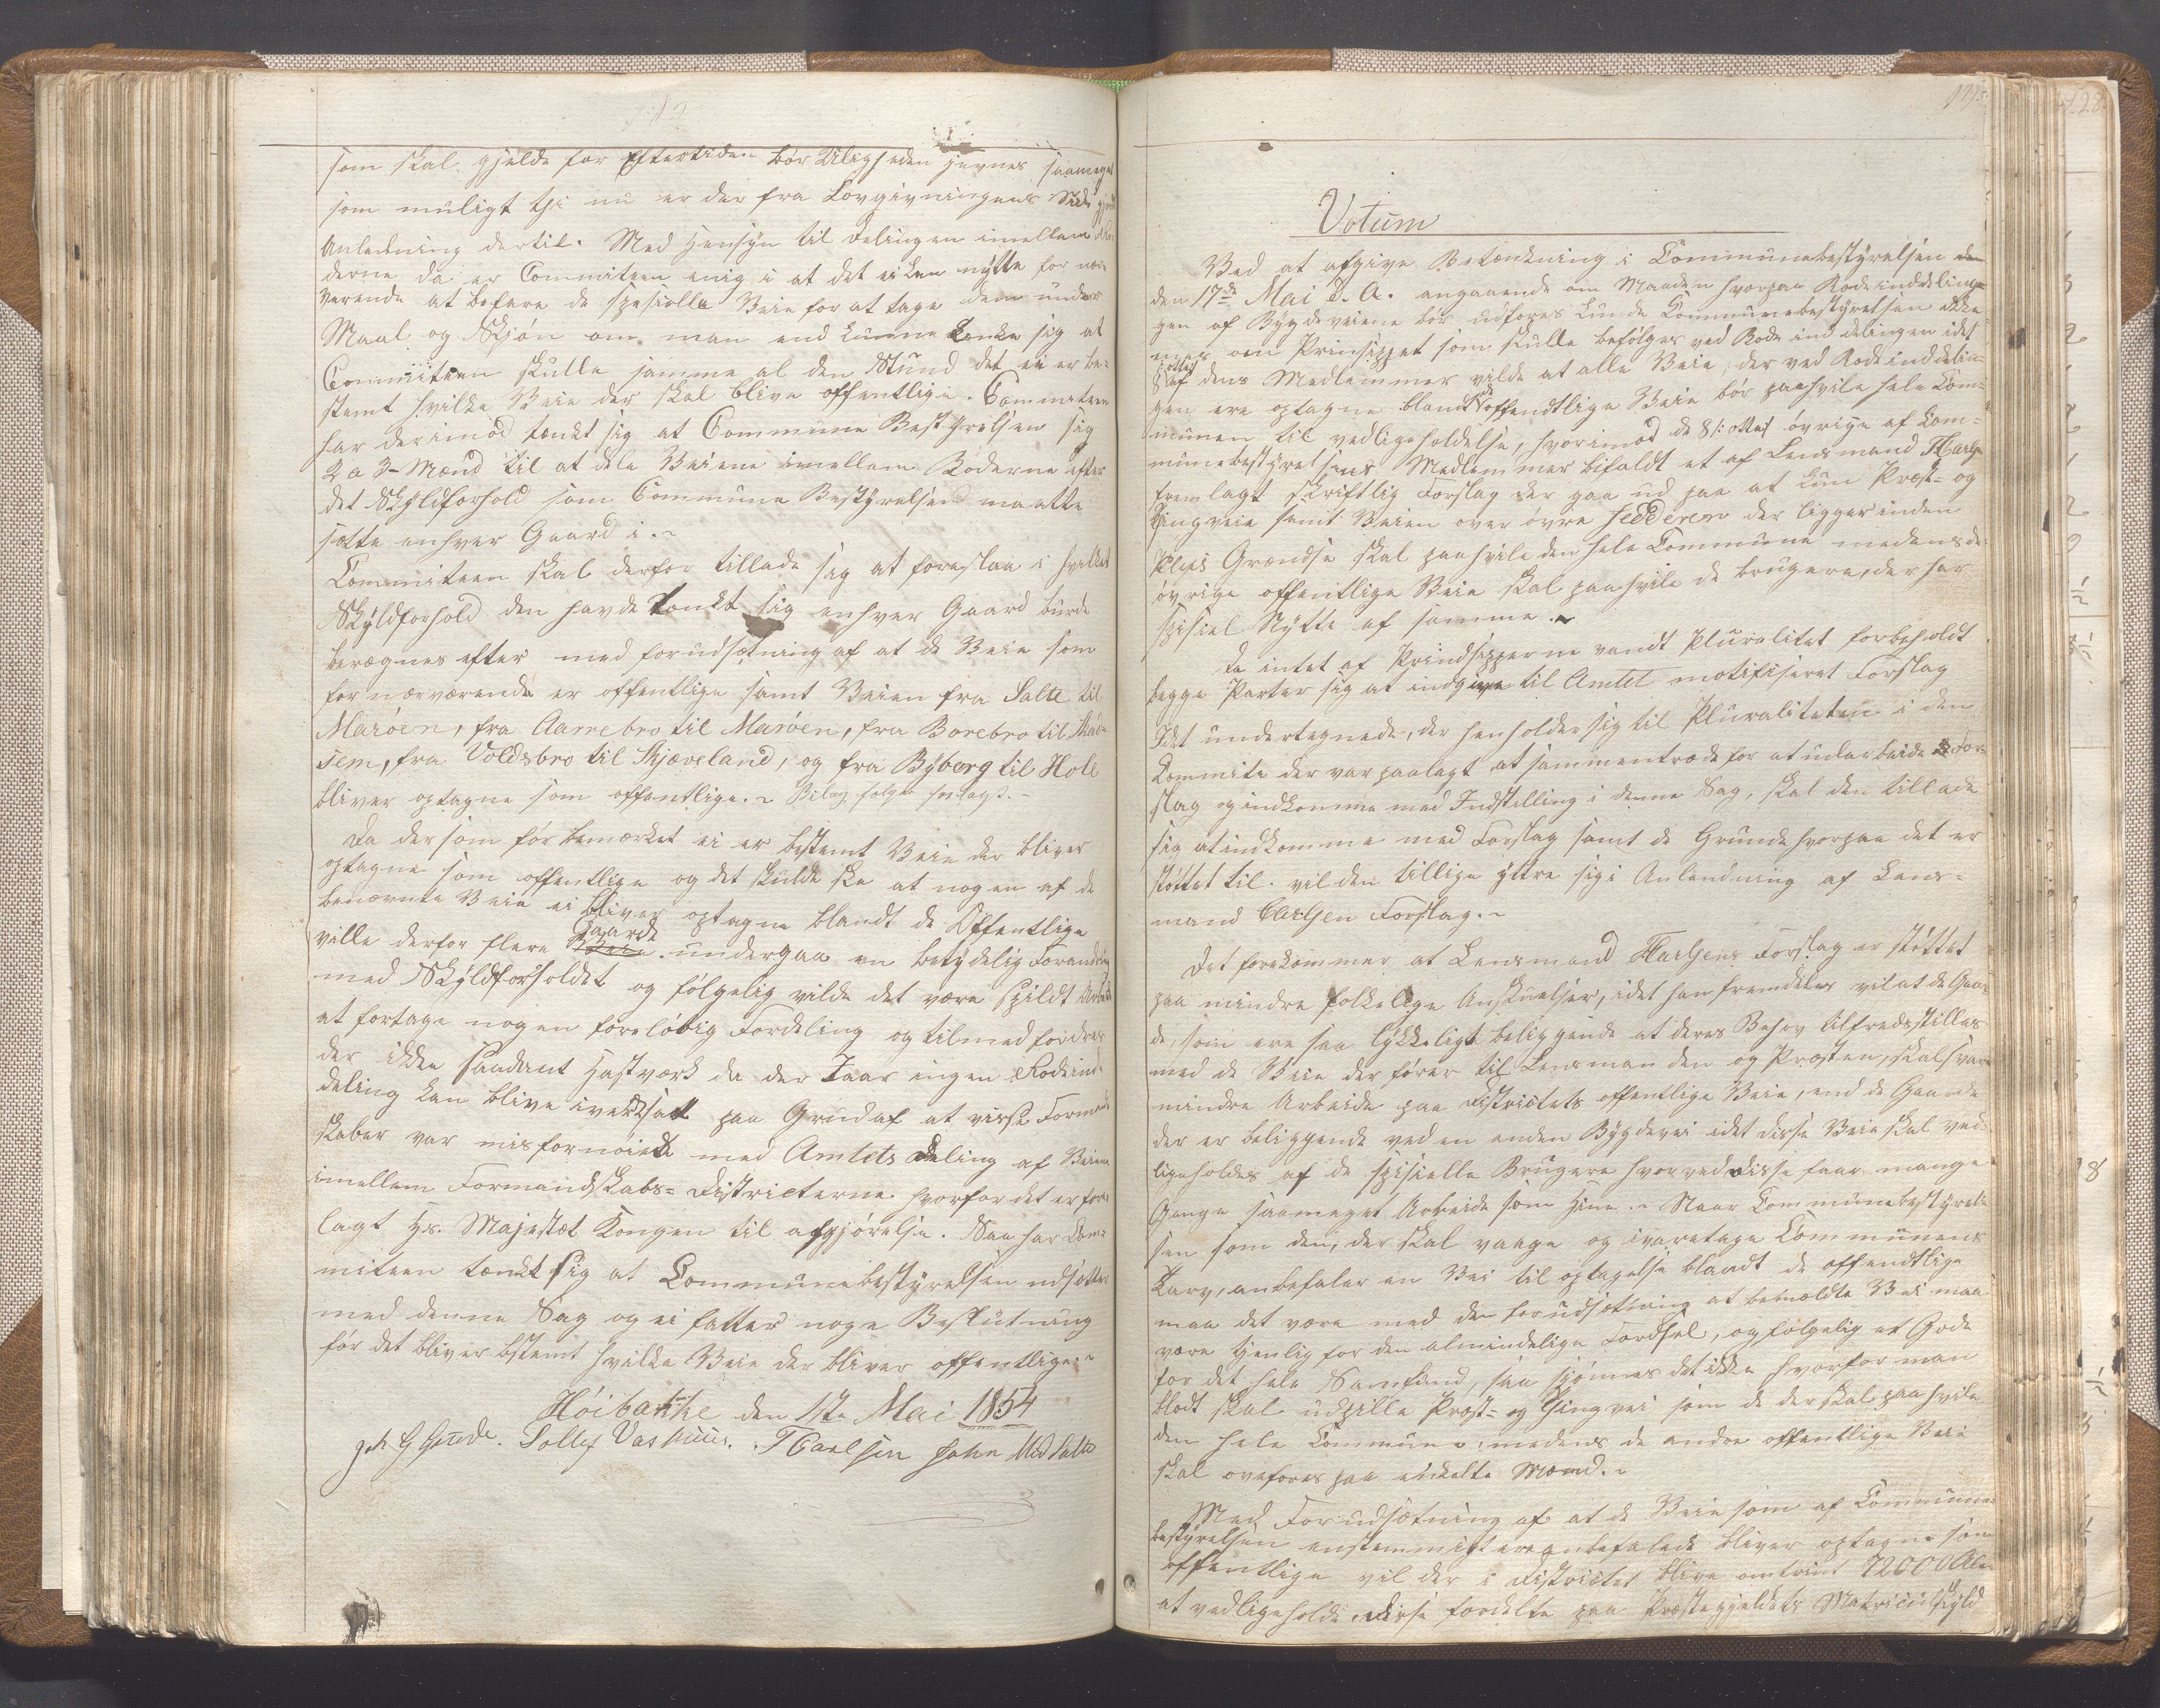 som skal gjelde for Eftertiden bør Uligheden jevnes saameget
som muligt thi nu er der fra Lovgivningens Side gjort
Anledning dertil. Med Hensyn til Delingen imellem
derne da er Commiteen enig i at det ei kan nytte for nær-
værende at befare de spesielle Veie for at tage dem under
Maal og Skjøn om man end kunne tænke sig at
Commiteen skulle samme al den Stund det ei er be-
stemt hvilke Veie der skal blive offentlige. Commiteen
har derimod tænkt sig at Commune Bestyrelsen
2 a 3 Mænd til at dele Veiene imellem Roderne efter
det Skyldforhold som Commune Bestyrelsen maatte
sætte enhver Gaard i.
Commiteen skal derfor tillade sig at foreslaa i hvilket
Skyldforhold den havde tænkt sig enhver Gaard burde
beregnes efter med forudsætning af at de Veie som
for nærværende er offentlige samt Veien fra Salte til
Marøen, fra Aarrebro til Marøen, fra Borebro til Mad-
sem, fra Voldsbro til Skjæveland, og fra Byberg til Hole
bliver optagne som offentlige. Bilag følge
Da der som før bemærket ei er bestemt Veie der bliver
optagne som offentlige og det skulde ske at nogen af de
benævnte Veie ei bliver optagne blandt de Offentlige
ville derfor flere Gaarde undergaa en betydelig Forandring
med Skyldforholdet og følgelig vilde det være spildt Arbeide
at fortage nogen foreløbig Fordeling og tilmed fordres
der ikke saadant Hastværk da der Iaar ingen Rodeind-
deling kan blive iverksatt paa Grund af at visse Formand-
skaber var misfornøiede med Amtets Deling af Veiene
imellem Formandskabs-Districterne hvorfor det er fore-
lagt Hs. Majestæt Kongen til afgjørelse. Saa har Com-
miteen tænkt sig at Communebestyrelsen udsætter
med denne Sag og ei fatter noge Beslutning
før det bliver bestemt hvilke Veie der bliver offentlige.
Høibakke den 1ste Mai 1854
G Grude. Tollef Vasshuus. T Carlsen John Salte
Votum
Ved at afgive Betænkning i Communebestyrelsen den
den 17de Mai d. A. angaaende om Maaden hvorpaa Rodeinddelin-
gen af Bygdeveiene bør udføres kunde Communebestyrelsen ikke
enes om Prinsippet som skulle befølges ved Rodeinddelingen idet
8 /:otte:/ af dens Medlemmer vilde at alle Veie, der ved Rodeinddelin-
gen ere optagne blandt de offendtlige Veie bør paahvile hele Com-
munen til vedligeholdelse, hvorimod de 8 /:otte:/ øvrige af Com-
munebestyrelsens Medlemmer bifaldt et af Lensmand T Carlsen
fremlagt skriftlig Forslag der gaa ud paa at kun Præst- og
Thingveie samt Veien over øvre Hedderen der ligger inden
Klep's Grændse skal paahvile den hele Commune medens de
øvrige offentlige Veie skal paahvile de brugere, der har
spesiel Nytte af samme.
Da intet af Prindsipperne vandt Pluralitet forbeholdt
begge Parter sig at indgive til Amtet motifiseret Forslag
Idet undertegnede, der henholder sig til Pluraliteten i den
Commite der var paalagt at sammentræde for at udarbeide For-
slag og indkomme med Indstilling i denne Sag, skal den tillade
sig at indkomme med Forslag samt de Grunde hvorpaa det er
støttet til. vil den tillige yttre sig i Anledning af Lens-
mand Carlsen Forslag.
Det forekommer at Lensmand T Carlsens Forslag er støttet
paa mindre folkelige Anskuelser, idet han fremdeles vil at de Gaar-
de, som ere saa lykkeligt beliggende at deres Behov tilfredsstilles
med de Veie der fører til Lensmanden og Præsten, skal svare
mindre Arbeide paa Districtets offentlige Veie, end de Gaarde
der er beliggende ved en anden Bygdevei idet disse Veie skal ved-
ligeholdes af de spesielle Brugere hvorved Disse faar mange
Gange saameget Arbeide som Hine. Naar Communebestyrel-
sen som den, der skal vaage og ivaretage Communens
Tarv, anbefaler en Vei til optagelse blandt de offendtlige
maa det være med den forudsætning at bemeldte Vei maa
være tjenlig for den almindelige Færdsel, og følgelig et Gode
for det hele Samfund, saa skjønnes det ikke hvorfor man
blodt skal udpille Præst- og Thingvei som de der skal paahvile
den hele Commune, medens de andre offentlige Veie
skal overføres paa enkelte Mænd.
Med Forudsætning af at de Veie som af Commune-
bestyrelsen enstemmigt ere anbefalede bliver optagne som
offentlige vil der i Districtet blive omtrint 72000 Alen
at vedligeholde. Disse fordelte paa Præstegjeldets Matriculskyld